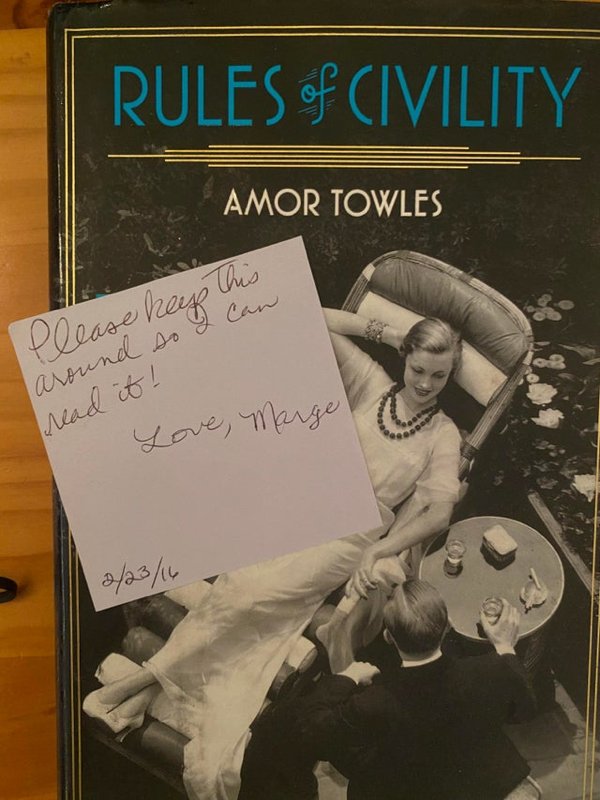 RULES of CIVILITY
AMOR TOWLES
Please keep this
around so I can
read it!
Love, Marge
2/23/16